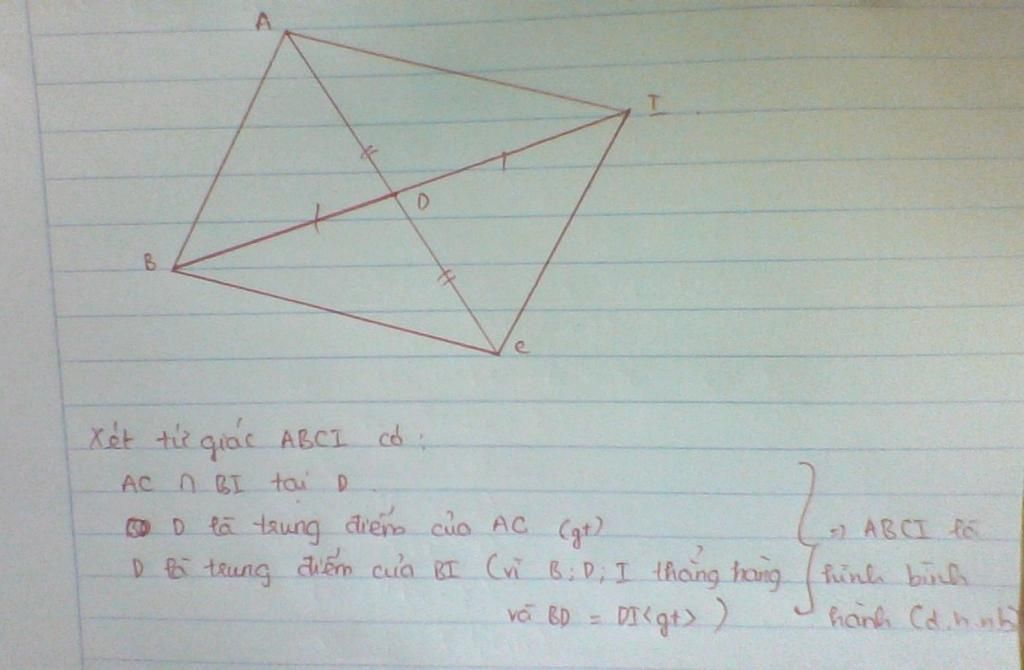 A
I
D
B
C
Xét tứ giác ABCI có :
AC ∩ BI tại D
D là trung điểm của AC (gt)
D là trung điểm của BI (vì B; D; I thẳng hàng
và BD = DI <gt> )
=> ABCI là
hình bình
hành (d.h.nb)